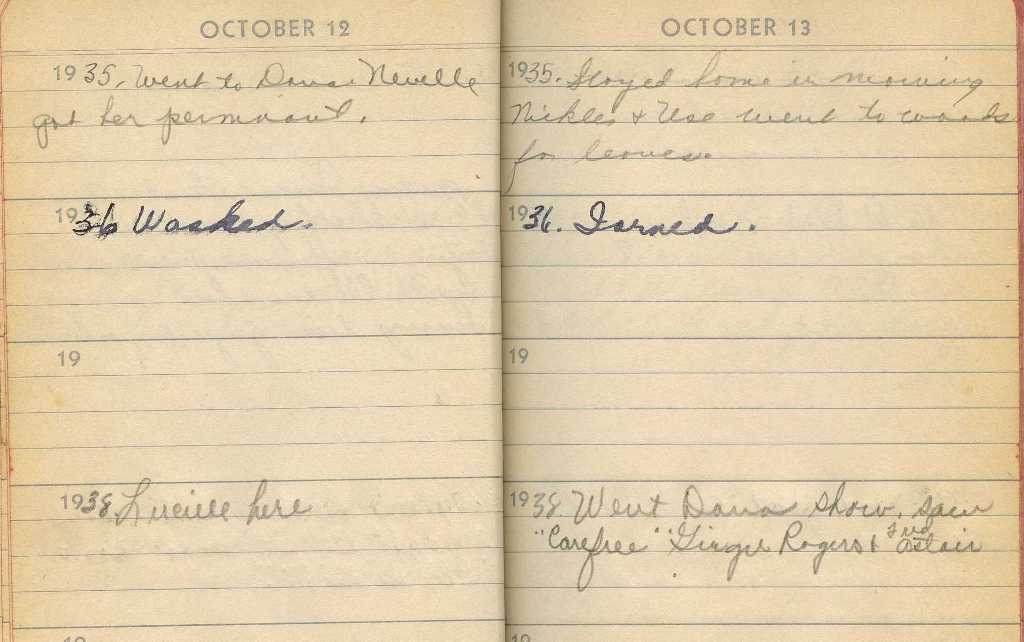 OCTOBER 12
1935. Went to Dana. Neville
got her permnant.
1936 Washed.
19
1938. Lucille here
19
OCTOBER 13
1935. Stayed home in morning
Nickles & Use went to woods
for leaves.
1936. Iorned.
19
1938. Went Dana show, saw
"Carefree" Ginger Rogers & Fred Astair
19